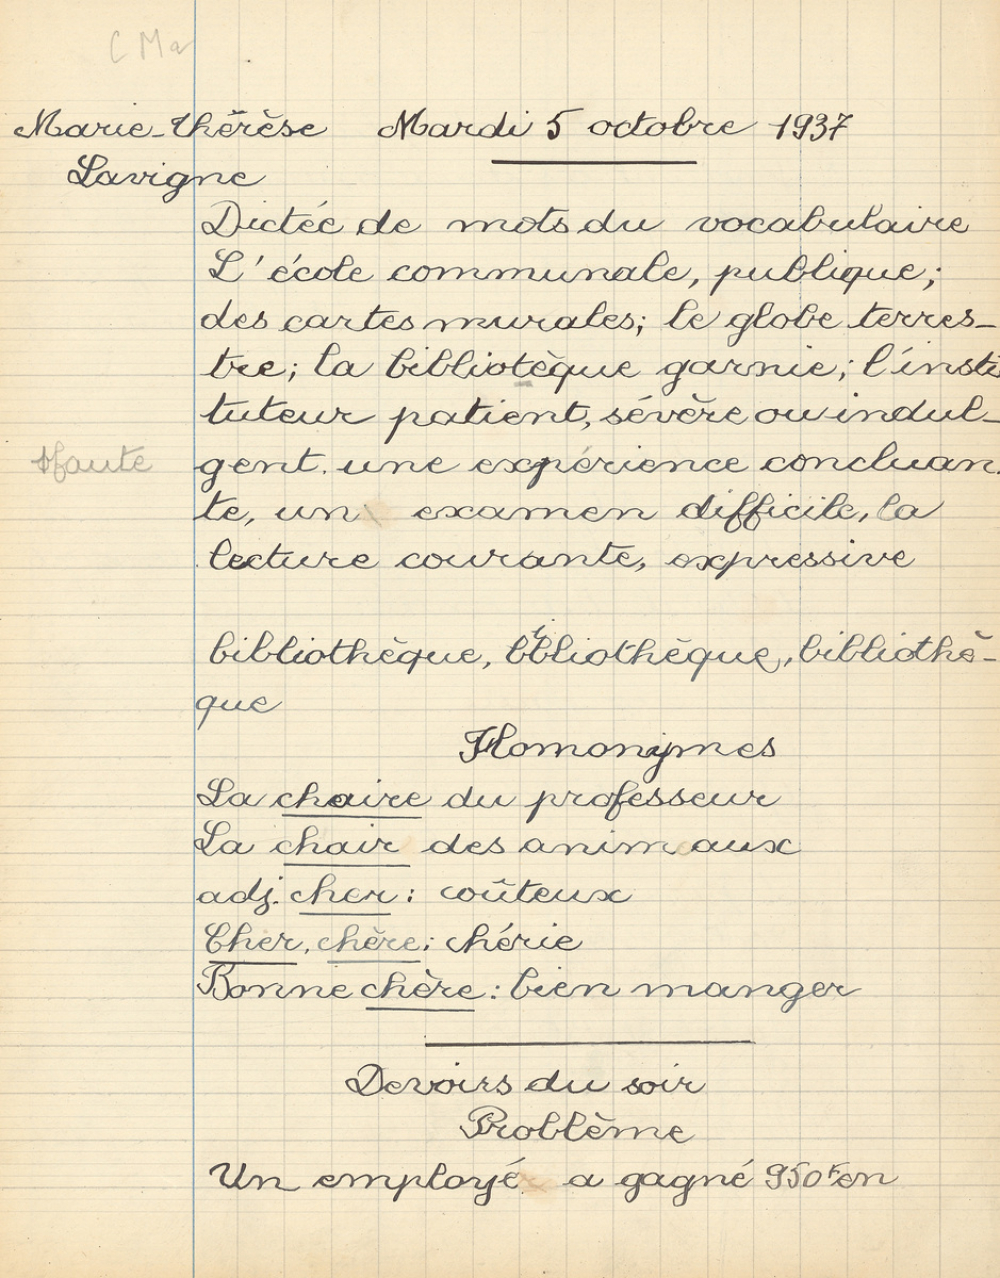 C Ma
Marie-thérèse Mardi 5 octobre 1937
Lavigne
Dictée de mots du vocabulaire
L'école communale, publique;
des cartes murales; le globe terres-
tre; la bibliotèque garnie; l'insti
tuteur patient, sévère ou indul-
1 faute gent. une expérience concluan-
te, un examen difficile, la
lecture courante, expressive
bibliothèque, bibliothèque, bibliothè-
que
Homonymes
La chaire du professeur
La chair des animaux
adj. cher: coûteux
Cher, chère: chérie
Bonne chère: bien manger
Devoirs du soir
Problème
Un employé a gagné 950F en